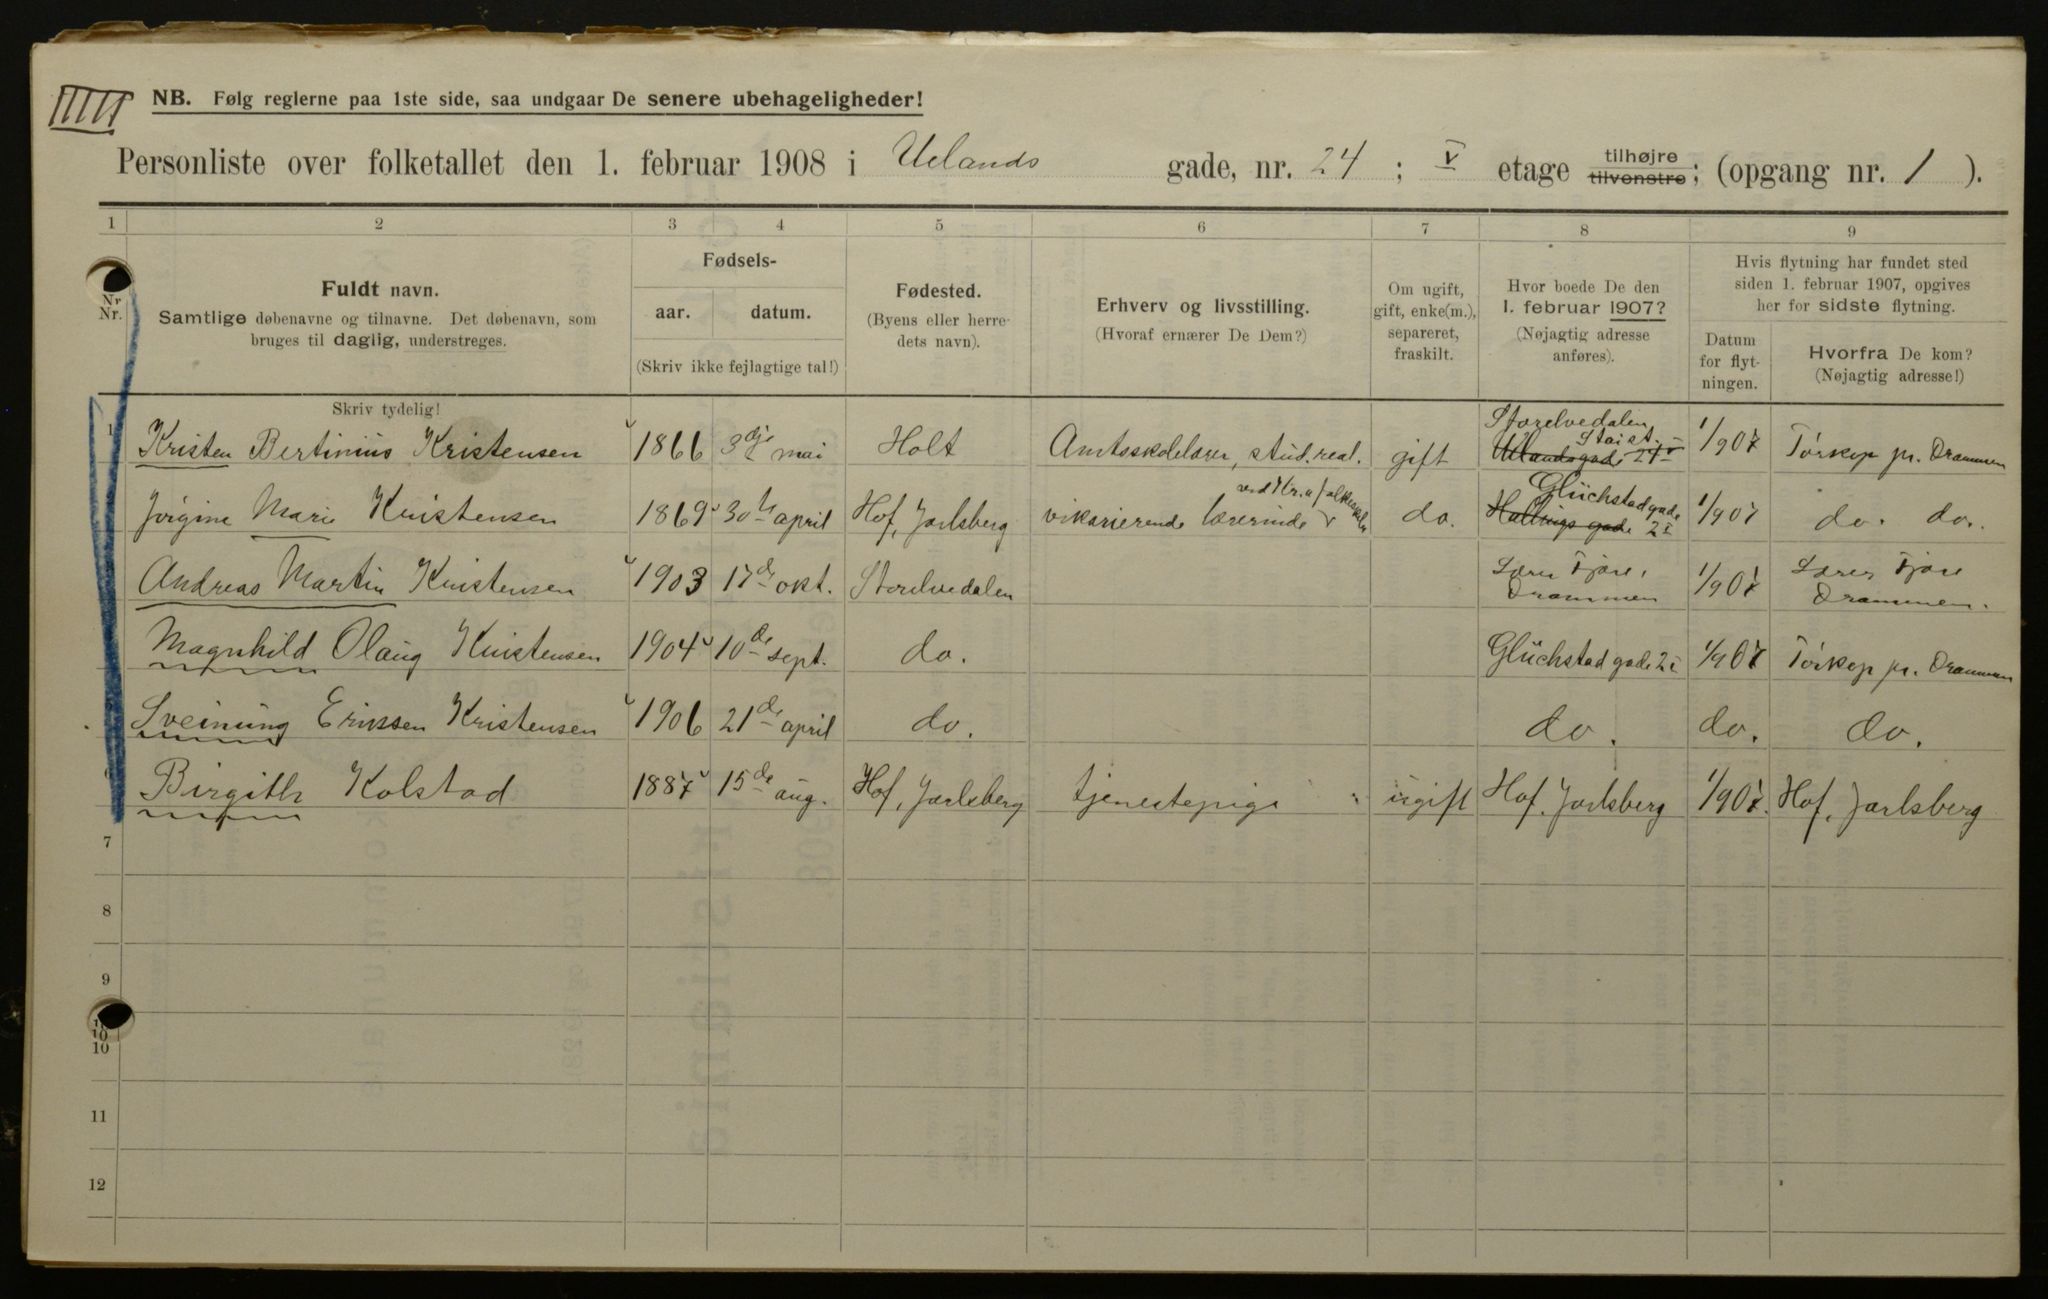 NB. Følg reglerne paa 1ste side, saa undgaar De senere ubehageligheder!
Personliste over folketallet den 1. februar 1908 i Uelands gade, nr. 24 ; V etage tilhøjre tilvenstre; (opgang nr. 1 ).
1 2 3 4 5 6 7 8 9
Nr. Nr.
Fuldt navn.
Samtlige døbenavne og tilnavne. Det døbenavn, som
bruges til daglig, understreges.
Fødsels-
aar. datum.
(Skriv ikke fejlagtige tal!)
Fødested.
(Byens eller herre-
dets navn).
Erhverv og livsstilling.
(Hvoraf ernærer De Dem?)
Om ugift,
gift, enke(m.),
separeret,
fraskilt.
Hvor boede De den
1. februar 1907?
(Nøjagtig adresse
anføres).
Hvis flytning har fundet sted
siden 1. februar 1907, opgives
her for sidste flytning.
Datum
for flyt-
ningen.
Hvorfra De kom?
(Nøjagtig adresse!)
Skriv tydelig!
1 Kristen Bertinius Kristensen 1866 3dje mai Holt Amtsskolelærer, stud. real. gift Storelvedalen Uelandsgade 24 V 1/9 07 Tørkop pr. Drammen
Jørgine Marie Kristensen 1869 30te april Hof, Jarlsberg vikarierende lærerinde ved Kr.a folkeskoler do. Glückstadgade Hallings gade 2 I 1/9 07 do. do.
Andreas Martin Kristensen 1903 17de okt. Storelvedalen Lærer Fjøse, Drammen 1/9 07 Lærer Fjøse Drammen.
Magnhild Olaug Kristensen 1904 10de sept. do. Glückstad gade 2 I 1/9 07 Tørkop pr. Drammen
Sveinung Erikssen Kristensen 1906 21de april do. do. do. do.
6 Birgith Kolstad 1887 15de aug. Hof, Jarlsberg tjenestepige ugift Hof. Jarlsberg 1/9 07. Hof, Jarlsberg
7
8
9
10
10
11
12